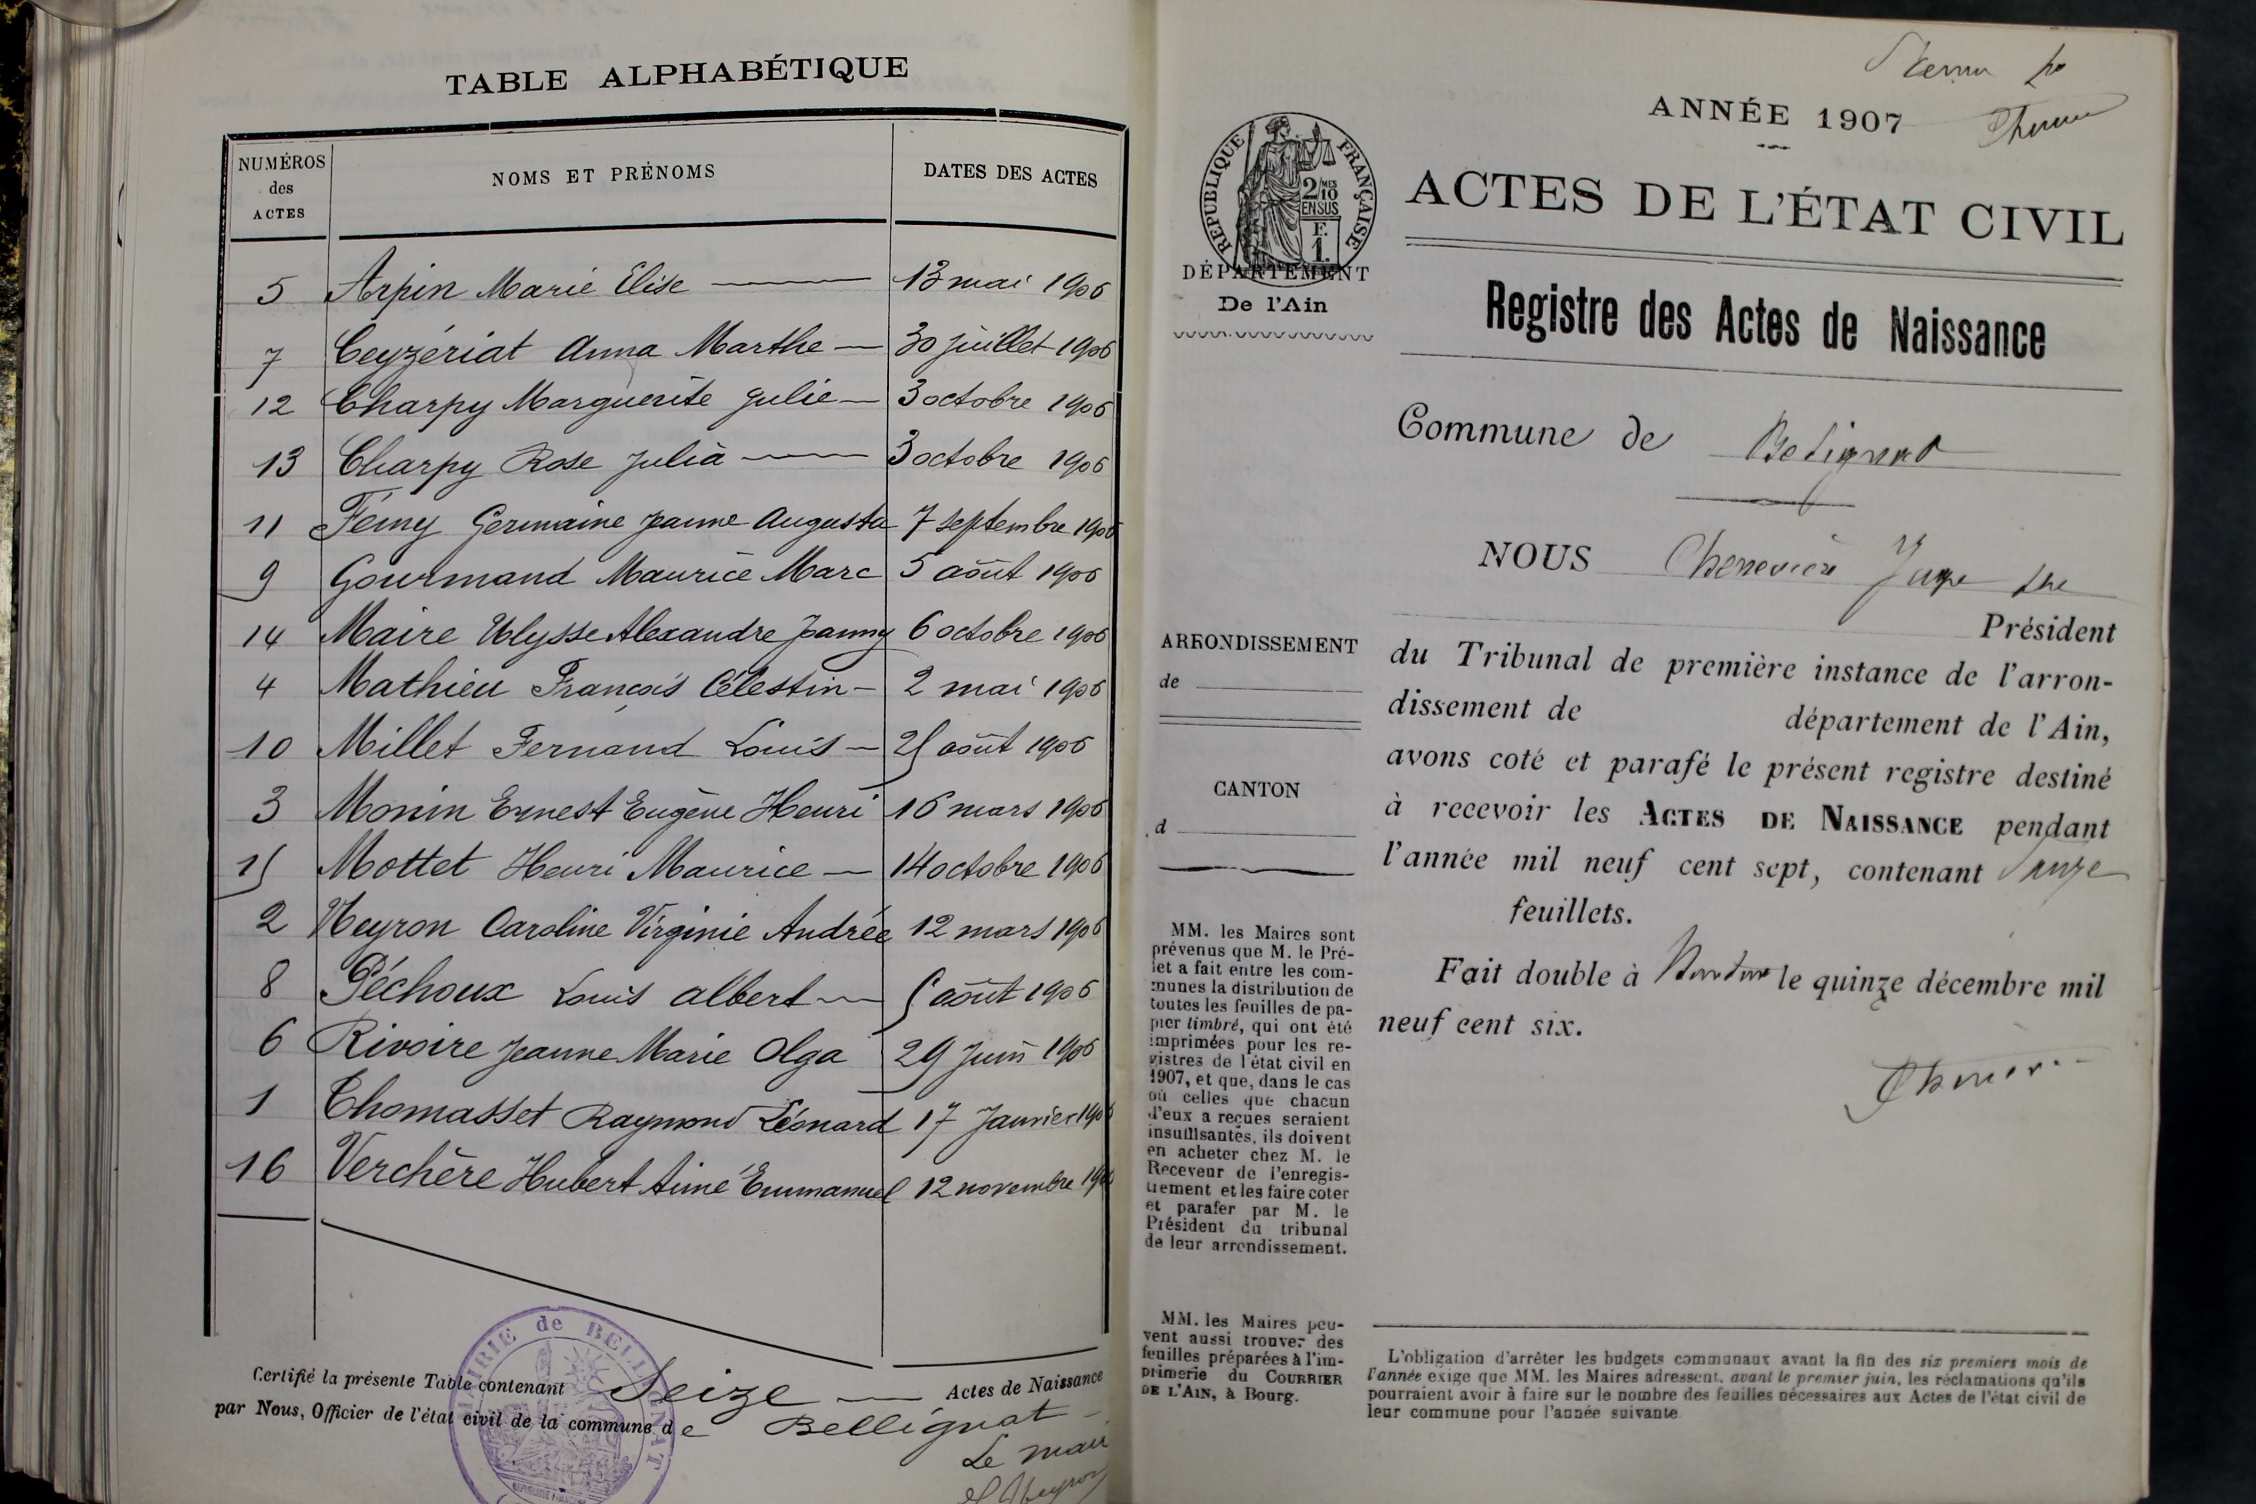 TABLE ALPHABÉTIQUE
NUMÉROS
des
ACTES
NOMS ET PRÉNOMS
DATES DES ACTES
5 Arpin Marie Elise 13 mai 1906
7 Ceyzériat Anna Marthe 30 juillet 1906
12 Charpy Marguerite Julie 3 octobre 1906
13 Charpy Rose Julia 3 octobre 1906
11 Fémy Germaine Jeanne Augusta 7 septembre 1906
9 Gourmand Maurice Marc 5 août 1906
14 Maire Ulysse Alexandre Joanny 6 octobre 1906
4 Mathieu François Célestin 2 mai 1906
10 Millet Fernand Louis 25 août 1906
3 Monin Ernest Eugène Henri 16 mars 1906
15 Mottet Henri Maurice 14 octobre 1906
2 Neyron Caroline Virginie Andrée 12 mars 1906
8 Péchoux Louis Albert 5 août 1906
6 Rivoire Jeanne Marie Olga 29 Juin 1906
1 Thomasset Raymond Léonard 17 Janvier 1906
16 Verchère Hubert Aimé Emmanuel 12 novembre 1906
Certifié la présente Table contenant Seize Actes de Naissance
par Nous, Officier de l'état civil de la commune de Bellignat
Le maire
MAIRIE de BELLIGNAT
ANNÉE 1907
RÉPUBLIQUE FRANÇAISE
2/10 MES
EN SUS
F.
1.
DÉPARTEMENT
De l'Ain
ACTES DE L'ÉTAT CIVIL
Registre des Actes de Naissance
Commune de Belignat
NOUS Chenevière Juge
Président
du Tribunal de première instance de l'arron-
dissement de département de l'Ain,
avons coté et parafé le présent registre destiné
à recevoir les ACTES DE NAISSANCE pendant
l'année mil neuf cent sept, contenant
feuillets.
Fait double à Nantua le quinze décembre mil
neuf cent six.
ARRONDISSEMENT
de
CANTON
d
MM. les Maires sont
prévenus que M. le Pré-
fet a fait entre les com-
munes la distribution de
toutes les feuilles de pa-
pier timbré, qui ont été
imprimées pour les re-
gistres de l'état civil en
1907, et que, dans le cas
où celles que chacun
d'eux a reçues seraient
insuffisantes, ils doivent
en acheter chez M. le
Receveur de l'enregis-
trement et les faire coter
et parafer par M. le
Président du tribunal
de leur arrondissement.
MM. les Maires peu-
vent aussi trouver des
feuilles préparées à l'im-
primerie du COURRIER
DE L'AIN, à Bourg.
L'obligation d'arrêter les budgets communaux avant la fin des six premiers mois de
l'année exige que MM. les Maires adressent, avant le premier juin, les réclamations qu'ils
pourraient avoir à faire sur le nombre des feuilles nécessaires aux Actes de l'état civil de
leur commune pour l'année suivante